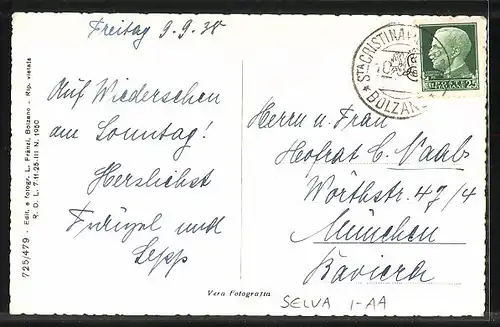 Freitag 9.9.38
Auf Wiedersehen
am Sonntag!
Herzlichst
und
Sepp
Herrn u. Frau
Hofrat C. Vaabs
Wörthstr. 47/4
München
Baviera
Sta CRISTINA
BOLZANO
25
725/479 - Edit. e fotogr. L. Fränzl, Bolzano - Rip. vietata
R. D. L. 7-11-25-III N. 1950
Vera Fotografia
SELVA I-AA